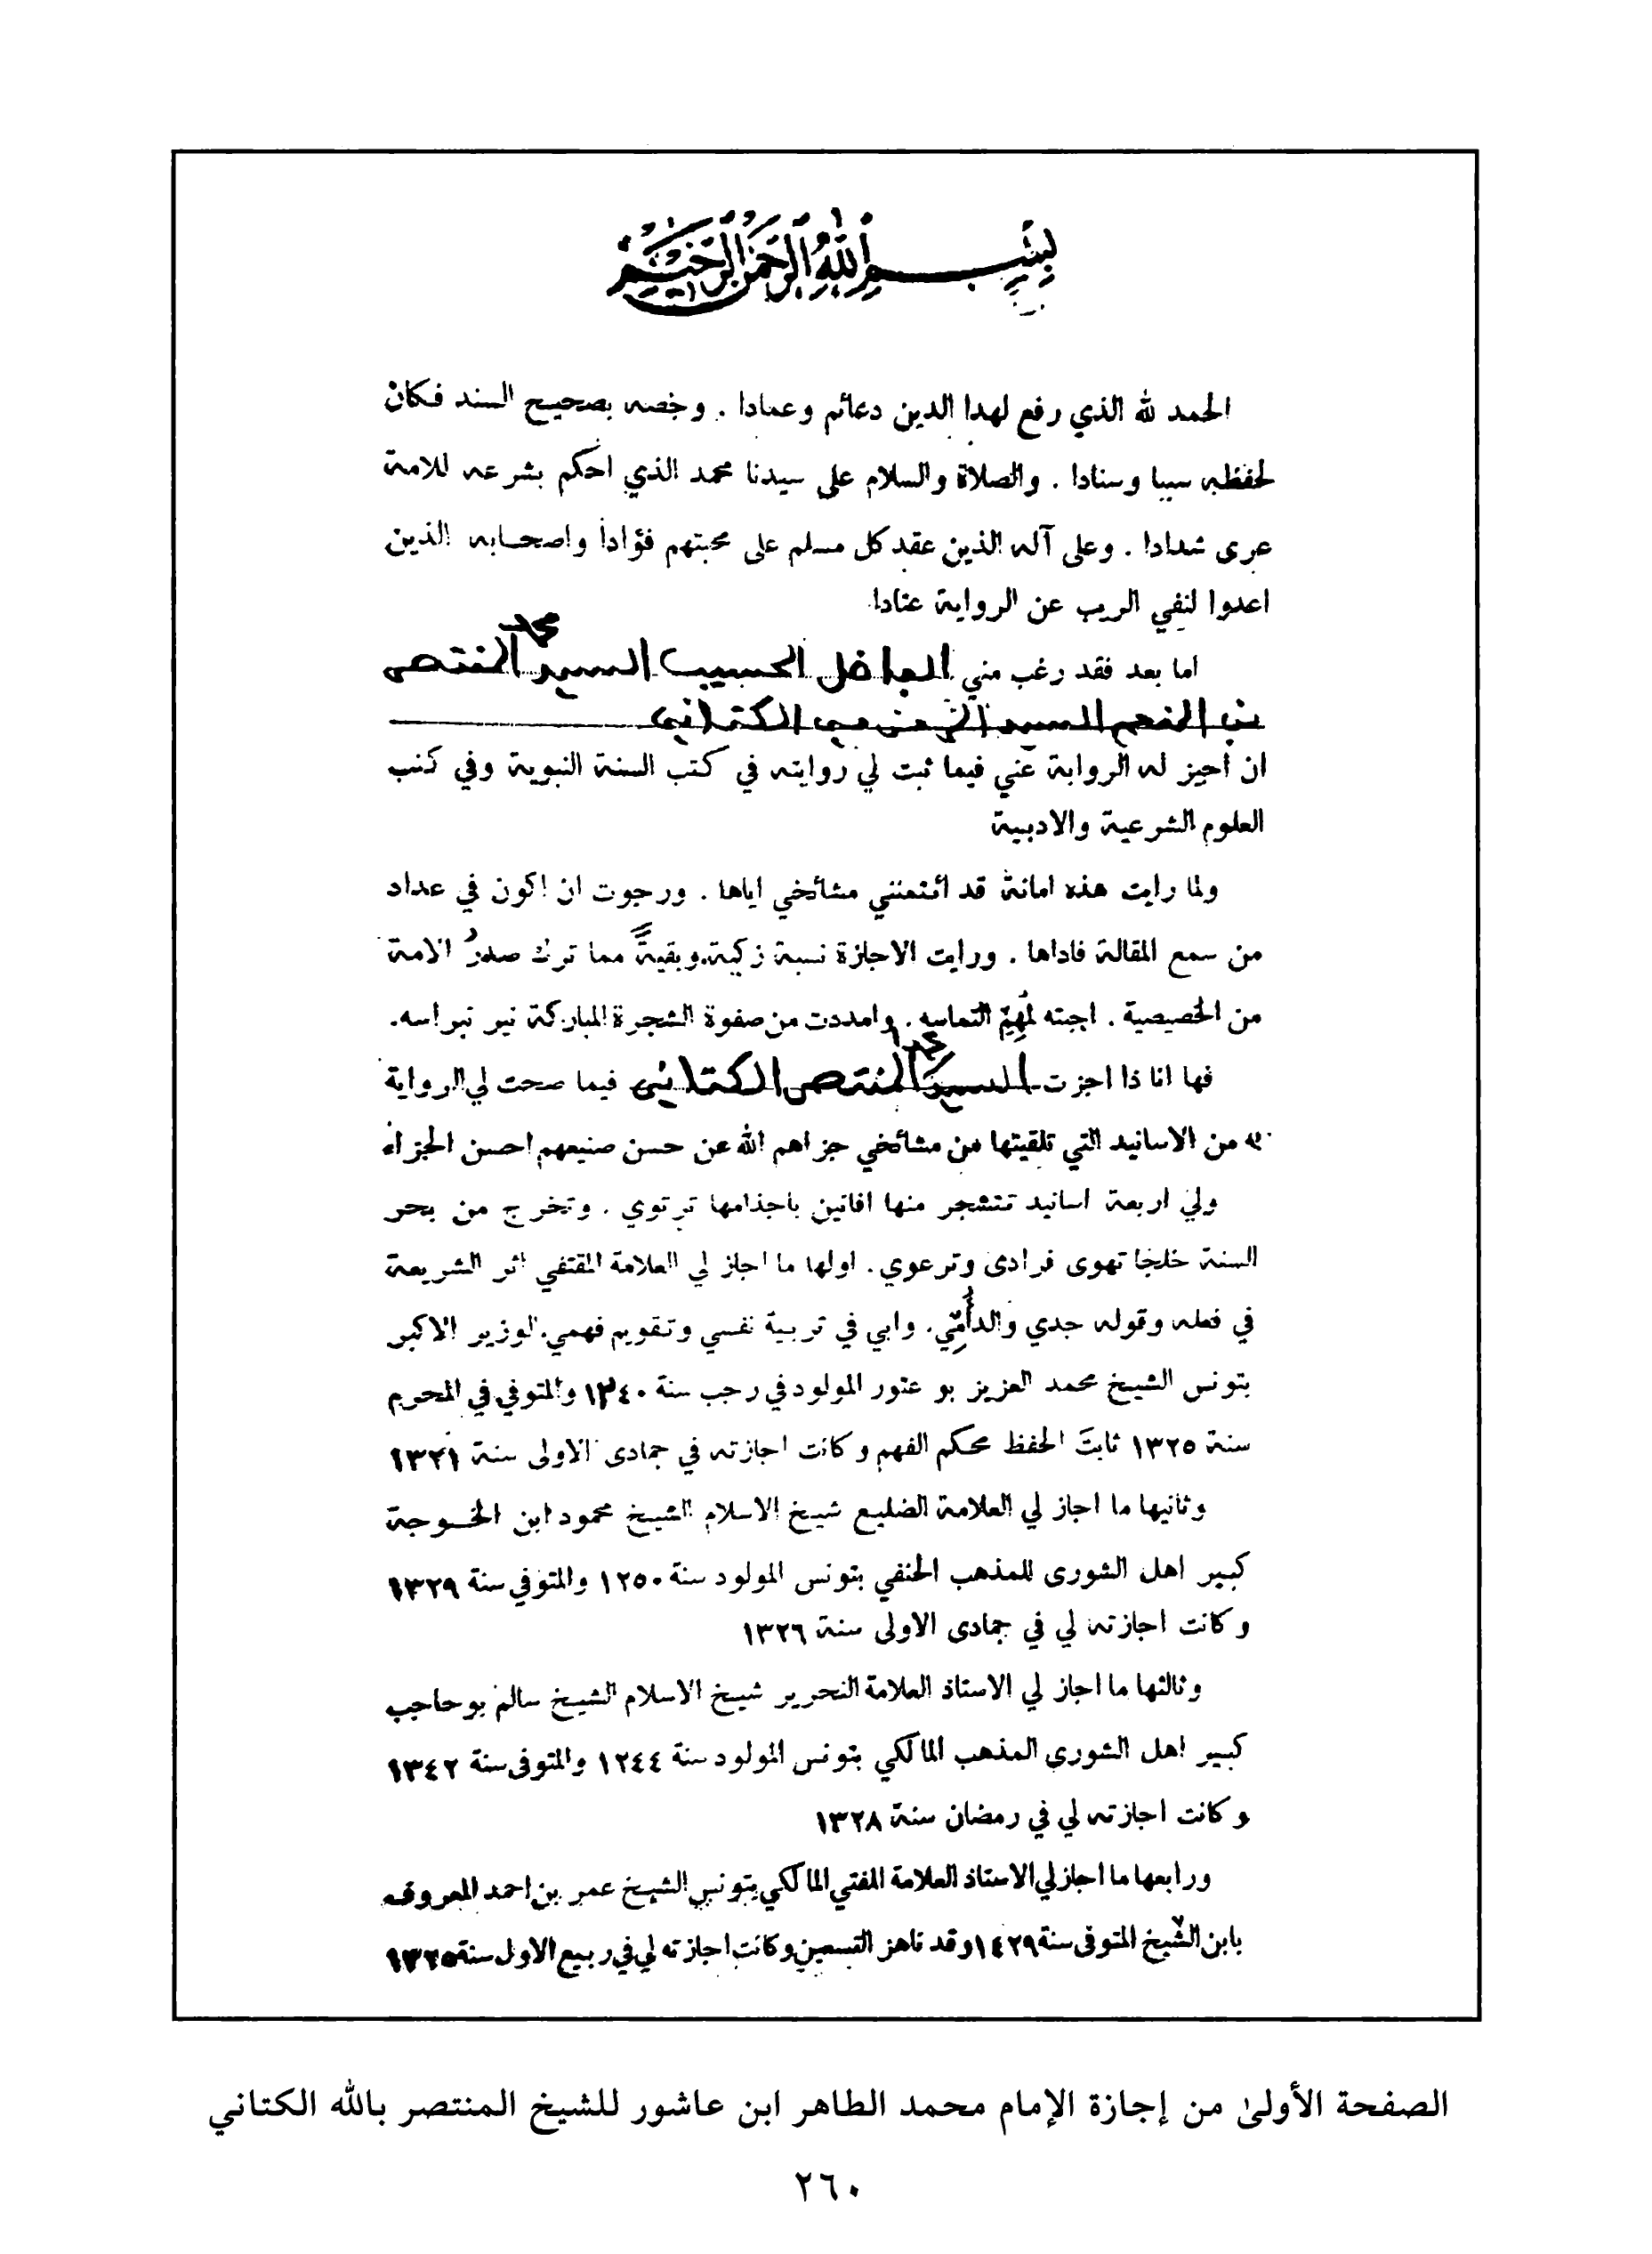 بسم الله الرحمن الرحيم
الحمد لله الذي رفع لهذا الدين دعائم وعمادا . وخصه بصحيح السند فكان
لحفظه سببا وسنادا . والصلاة والسلام على سيدنا محمد الذي احكم بشرعه للامة
عرى شدادا . وعلى آله الذين عقد كل مسلم على محبتهم فؤادا واصحابه الذين
اعدوا لنفي الريب عن الرواية عتادا
اما بعد فقد رغب مني الفاضل الحسيب السيد محمد المنتصر
بن المنعم السيد الزمزمي الكتاني
ان أجيز له الرواية عني فيما ثبت لي روايته في كتب السنة النبوية وفي كتب
العلوم الشرعية والادبية
ولما رايت هذه امانة قد ائتمنني مشائخي اياها . ورجوت ان اكون في عداد
من سمع المقالة فاداها . ورايت الاجازة نسبة زكية. وبقيةً مما ترك صدرُ الامة
من الخصيصية . اجبته لمُهِمّ التماسه . وامددت من صفوة الشجرة المباركة نير نبراسه.
فها انا ذا اجزت السيد محمد المنتصر الكتاني فيما صحت لي الرواية
به من الاسانيد التي تلقيتها من مشائخي جزاهم الله عن حسن صنيعهم احسن الجزاء
ولي اربعة اسانيد تتشجر منها افانين باجذامها ترتوي . وتخرج من بحر
السنة خلجا تهوى فرادى وترعوي . اولها ما اجاز لي العلامة المقتفي اثر الشريعة
في فعله وقوله جدي والدأُمِّي. وابي في تربية نفسي وتقويم فهمي. الوزير الاكبر
بتونس الشيخ محمد العزيز بو عتور المولود في رجب سنة ١٢٤٠ والمتوفي في المحرم
سنة ١٣٢٥ ثابتَ الحفظ محكم الفهم وكانت اجازته في جمادى الاولى سنة ١٣٢١
وثانيها ما اجاز لي العلامة الضليع شيخ الاسلام الشيخ محمود ابن الخوجة
كبير اهل الشورى للمذهب الحنفي بتونس المولود سنة ١٢٥٠ والمتوفي سنة ١٣٢٩
وكانت اجازته لي في جمادى الاولى سنة ١٣٢٦
وثالثها ما اجاز لي الاستاذ العلامة النحرير شيخ الاسلام الشيخ سالم بوحاجب
كبير اهل الشورى المذهب المالكي بتونس المولود سنة ١٢٤٤ والمتوفى سنة ١٣٤٢
وكانت اجازته لي في رمضان سنة ١٣٢٨
ورابعها ما اجاز لي الاستاذ العلامة المفتي المالكي بتونس الشيخ عمر بن احمد المعروف
بابن الشيخ المتوفى سنة ١٤٢٩ وقد ناهز التسعين وكانت اجازته لي في ربيع الاول سنة ١٣٢٥
الصفحة الأولىٰ من إجازة الإمام محمد الطاهر ابن عاشور للشيخ المنتصر بالله الكتاني
٢٦٠